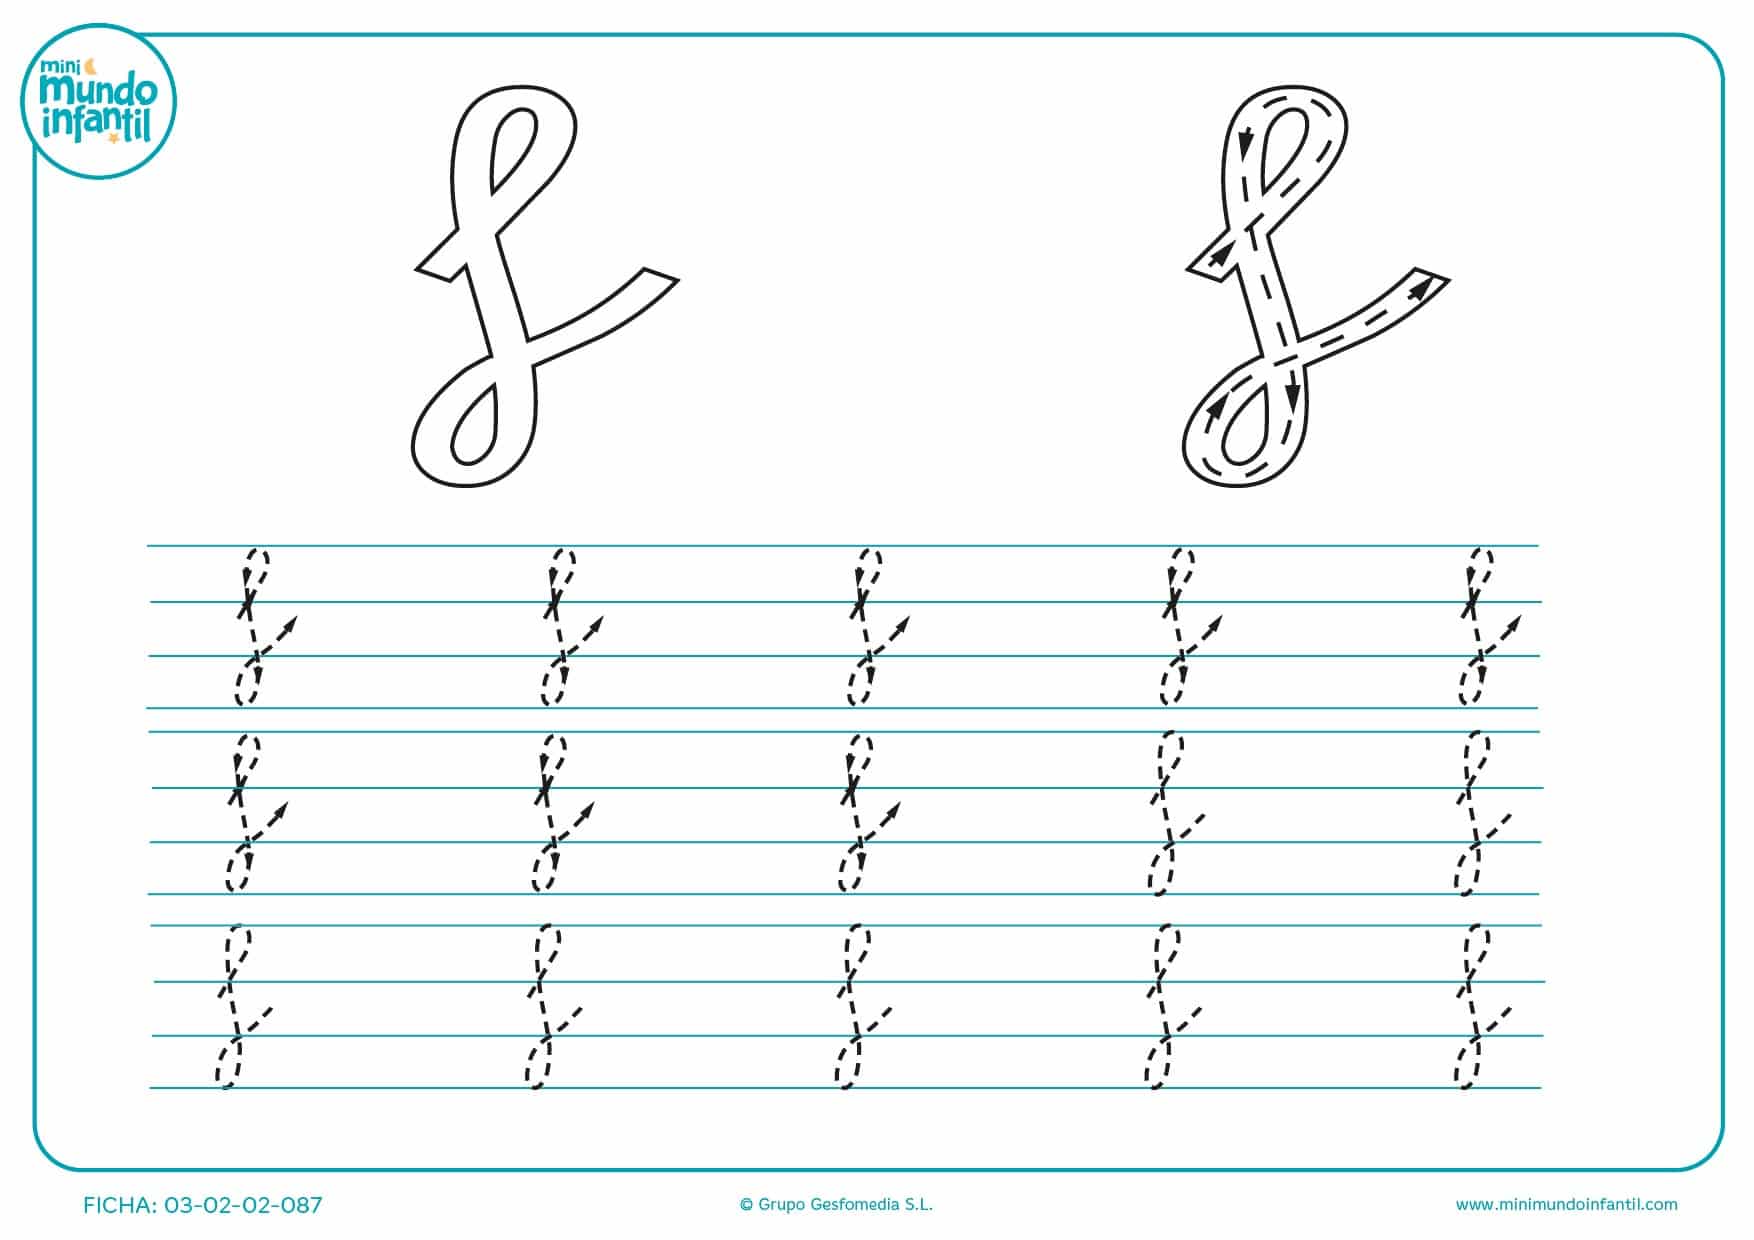 mini
mundo
infantil
f f
f f f f f
f f f f f
f f f f f
FICHA: 03-02-02-087
© Grupo Gesfomedia S.L.
www.minimundoinfantil.com